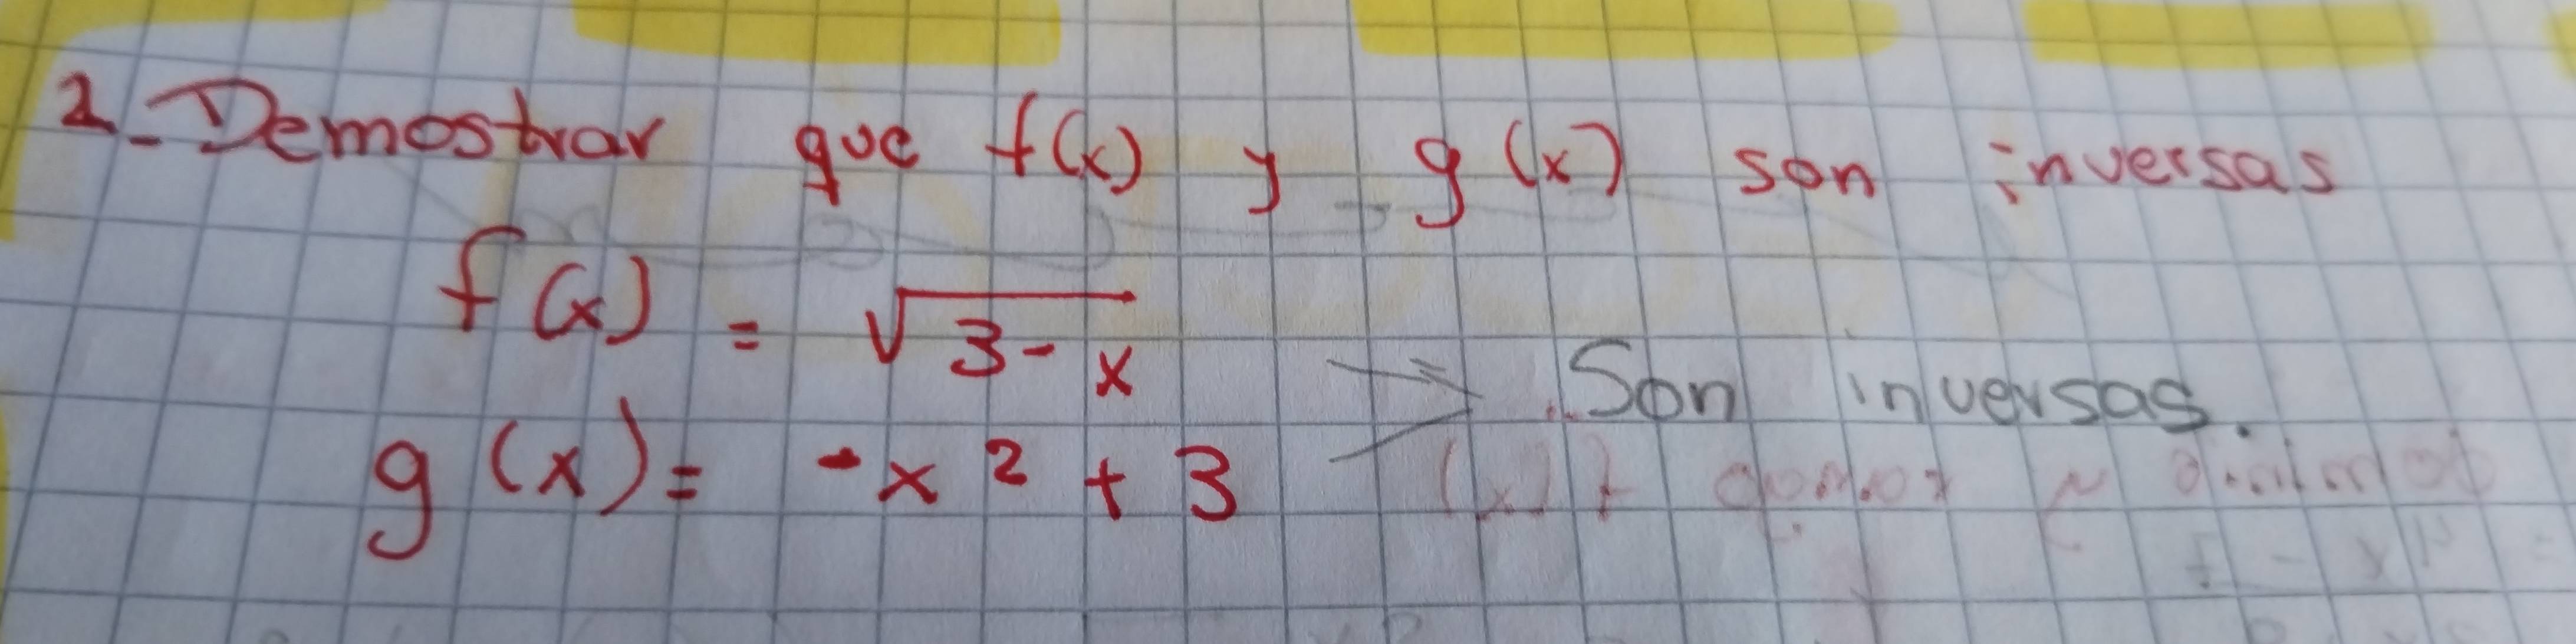 2.- Demostrar que f(x) y g(x) son inversas
f(x) = √3-x
g(x) = -x² + 3
Son inversas.